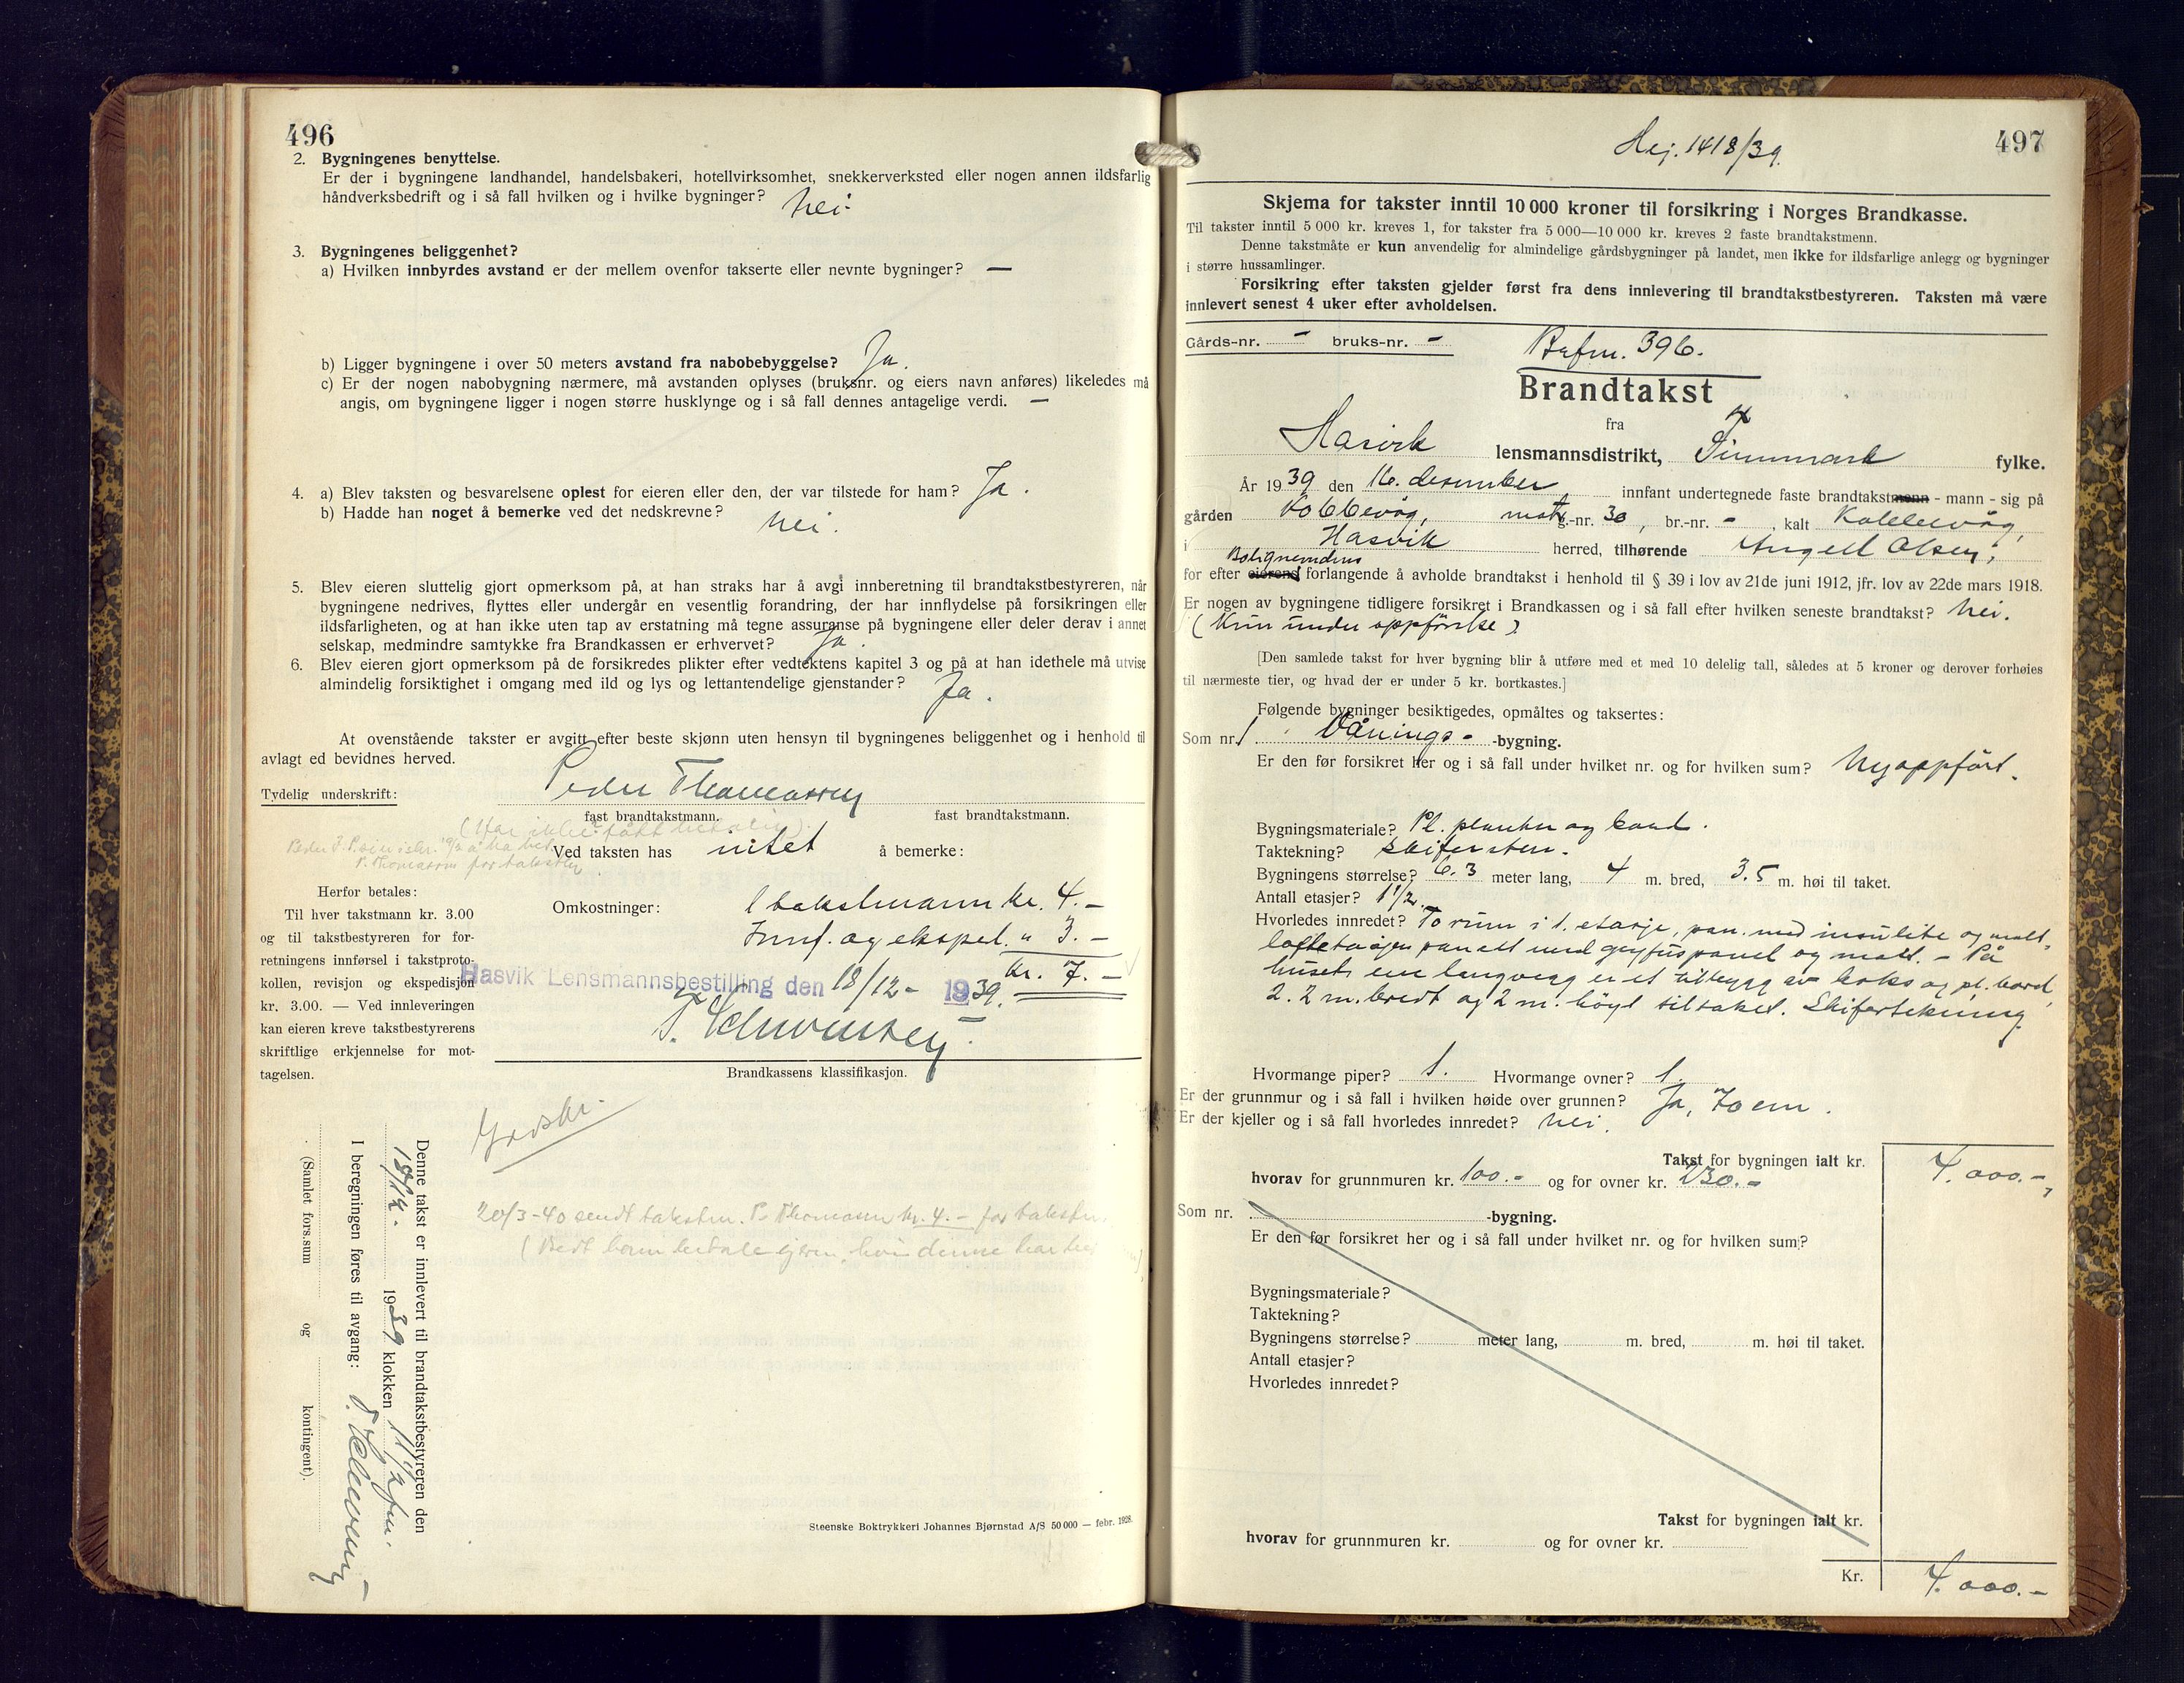 496
2. Bygningenes benyttelse.
Er der i bygningene landhandel, handelsbakeri, hotellvirksomhet, snekkerverksted eller nogen annen ildsfarlig
håndverksbedrift og i så fall hvilken og i hvilke bygninger? Nei.
3. Bygningenes beliggenhet?
a) Hvilken innbyrdes avstand er der mellem ovenfor takserte eller nevnte bygninger? —
b) Ligger bygningene i over 50 meters avstand fra nabobebyggelse? Ja.
c) Er der nogen nabobygning nærmere, må avstanden oplyses (bruksnr. og eiers navn anføres) likeledes må
angis, om bygningene ligger i nogen større husklynge og i så fall dennes antagelige verdi. —
4. a) Blev taksten og besvarelsene oplest for eieren eller den, der var tilstede for ham? Ja.
b) Hadde han noget å bemerke ved det nedskrevne? Nei.
5. Blev eieren sluttelig gjort opmerksom på, at han straks har å avgi innberetning til brandtakstbestyreren, når
bygningene nedrives, flyttes eller undergår en vesentlig forandring, der har innflydelse på forsikringen eller
ildsfarligheten, og at han ikke uten tap av erstatning må tegne assuranse på bygningene eller deler derav i annet
selskap, medmindre samtykke fra Brandkassen er erhvervet? Ja.
6. Blev eieren gjort opmerksom på de forsikredes plikter efter vedtektens kapitel 3 og på at han idethele må utvise
almindelig forsiktighet i omgang med ild og lys og lettantendelige gjenstander? Ja.
At ovenstående takster er avgitt efter beste skjønn uten hensyn til bygningenes beliggenhet og i henhold til
avlagt ed bevidnes herved.
Tydelig underskrift: Peder Thomassen
fast brandtakstmann. fast brandtakstmann.
Ved taksten has intet å bemerke:
Herfor betales:
Til hver takstmann kr. 3.00
og til takstbestyreren for for-
retningens innførsel i takstproto-
kollen, revisjon og ekspedisjon
kr. 3.00. — Ved innleveringen
kan eieren kreve takstbestyrerens
skriftlige erkjennelse for mot-
tagelsen.
Omkostninger: 1 takstmann kr. 4.–
Innf. og eksped. " 3.–
kr. 7.–
Hasvik Lensmannsbestilling den 18/12– 1939.
Brandkassens klassifikasjon.
20/3-40 sendt taksten. P. Thomassen kr. 4.– for taksten
Denne takst er innlevert til brandtakstbestyreren den
18/12. 1939 klokken 11 1/2 fm.
I beregningen føres til avgang:
(Samlet fors.sum og kontingent).
Steenske Boktrykkeri Johannes Bjørnstad A/S 50 000 — febr. 1928.
Hej. 1418/39.
497
Skjema for takster inntil 10 000 kroner til forsikring i Norges Brandkasse.
Til takster inntil 5 000 kr. kreves 1, for takster fra 5 000—10 000 kr. kreves 2 faste brandtakstmenn.
Denne takstmåte er kun anvendelig for almindelige gårdsbygninger på landet, men ikke for ildsfarlige anlegg og bygninger
i større hussamlinger.
Forsikring efter taksten gjelder først fra dens innlevering til brandtakstbestyreren. Taksten må være
innlevert senest 4 uker efter avholdelsen.
Gårds-nr. – bruks-nr. – 396.
Brandtakst
fra
Hasvik lensmannsdistrikt, Finnmark fylke.
År 1939 den 16. desember innfant undertegnede faste brandtakstmenn - mann - sig på
gården Kobbevåg, matr. g.-nr. 30, br.-nr. –, kalt Kobbevåg,
i Hasvik herred, tilhørende Angell Olsen,
Bolignemdens
for efter eierens forlangende å avholde brandtakst i henhold til § 39 i lov av 21de juni 1912, jfr. lov av 22de mars 1918.
Er nogen av bygningene tidligere forsikret i Brandkassen og i så fall efter hvilken seneste brandtakst? Nei.
(Kun under oppførelse).
[Den samlede takst for hver bygning blir å utføre med et med 10 delelig tall, således at 5 kroner og derover forhøies
til nærmeste tier, og hvad der er under 5 kr. bortkastes.]
Følgende bygninger besiktigedes, opmåltes og taksertes:
Som nr. 1 Vånings- -bygning.
Er den før forsikret her og i så fall under hvilket nr. og for hvilken sum? Nyoppført.
Bygningsmateriale? Pl. planker og bord.
Taktekning? Skifersten.
Bygningens størrelse? 6.3 meter lang, 4 m. bred, 3.5 m. høi til taket.
Antall etasjer? 1 1/2.
Hvorledes innredet? To rum i 1. etasje, pan. med insulite og malt,
loftetasjen panelt med gryfuspanel og malt. – På
husets ene langvegg er et tilbygg av boks og pl. bord,
2.2 m. bredt og 2 m. høgt til taket. Skifertekning.
Hvormange piper? 1. Hvormange ovner? 1.
Er der grunnmur og i så fall i hvilken høide over grunnen? Ja, 70 cm.
Er der kjeller og i så fall hvorledes innredet? Nei.
Takst for bygningen ialt kr. 4.000.–
hvorav for grunnmuren kr. 100.– og for ovner kr. 130.–
Som nr. -bygning.
Er den før forsikret her og i så fall under hvilket nr. og for hvilken sum?
Bygningsmateriale?
Taktekning?
Bygningens størrelse? meter lang, m. bred, m. høi til taket.
Antall etasjer?
Hvorledes innredet?
Takst for bygningen ialt kr.
hvorav for grunnmuren kr. og for ovner kr.
Kr. 4.000.–